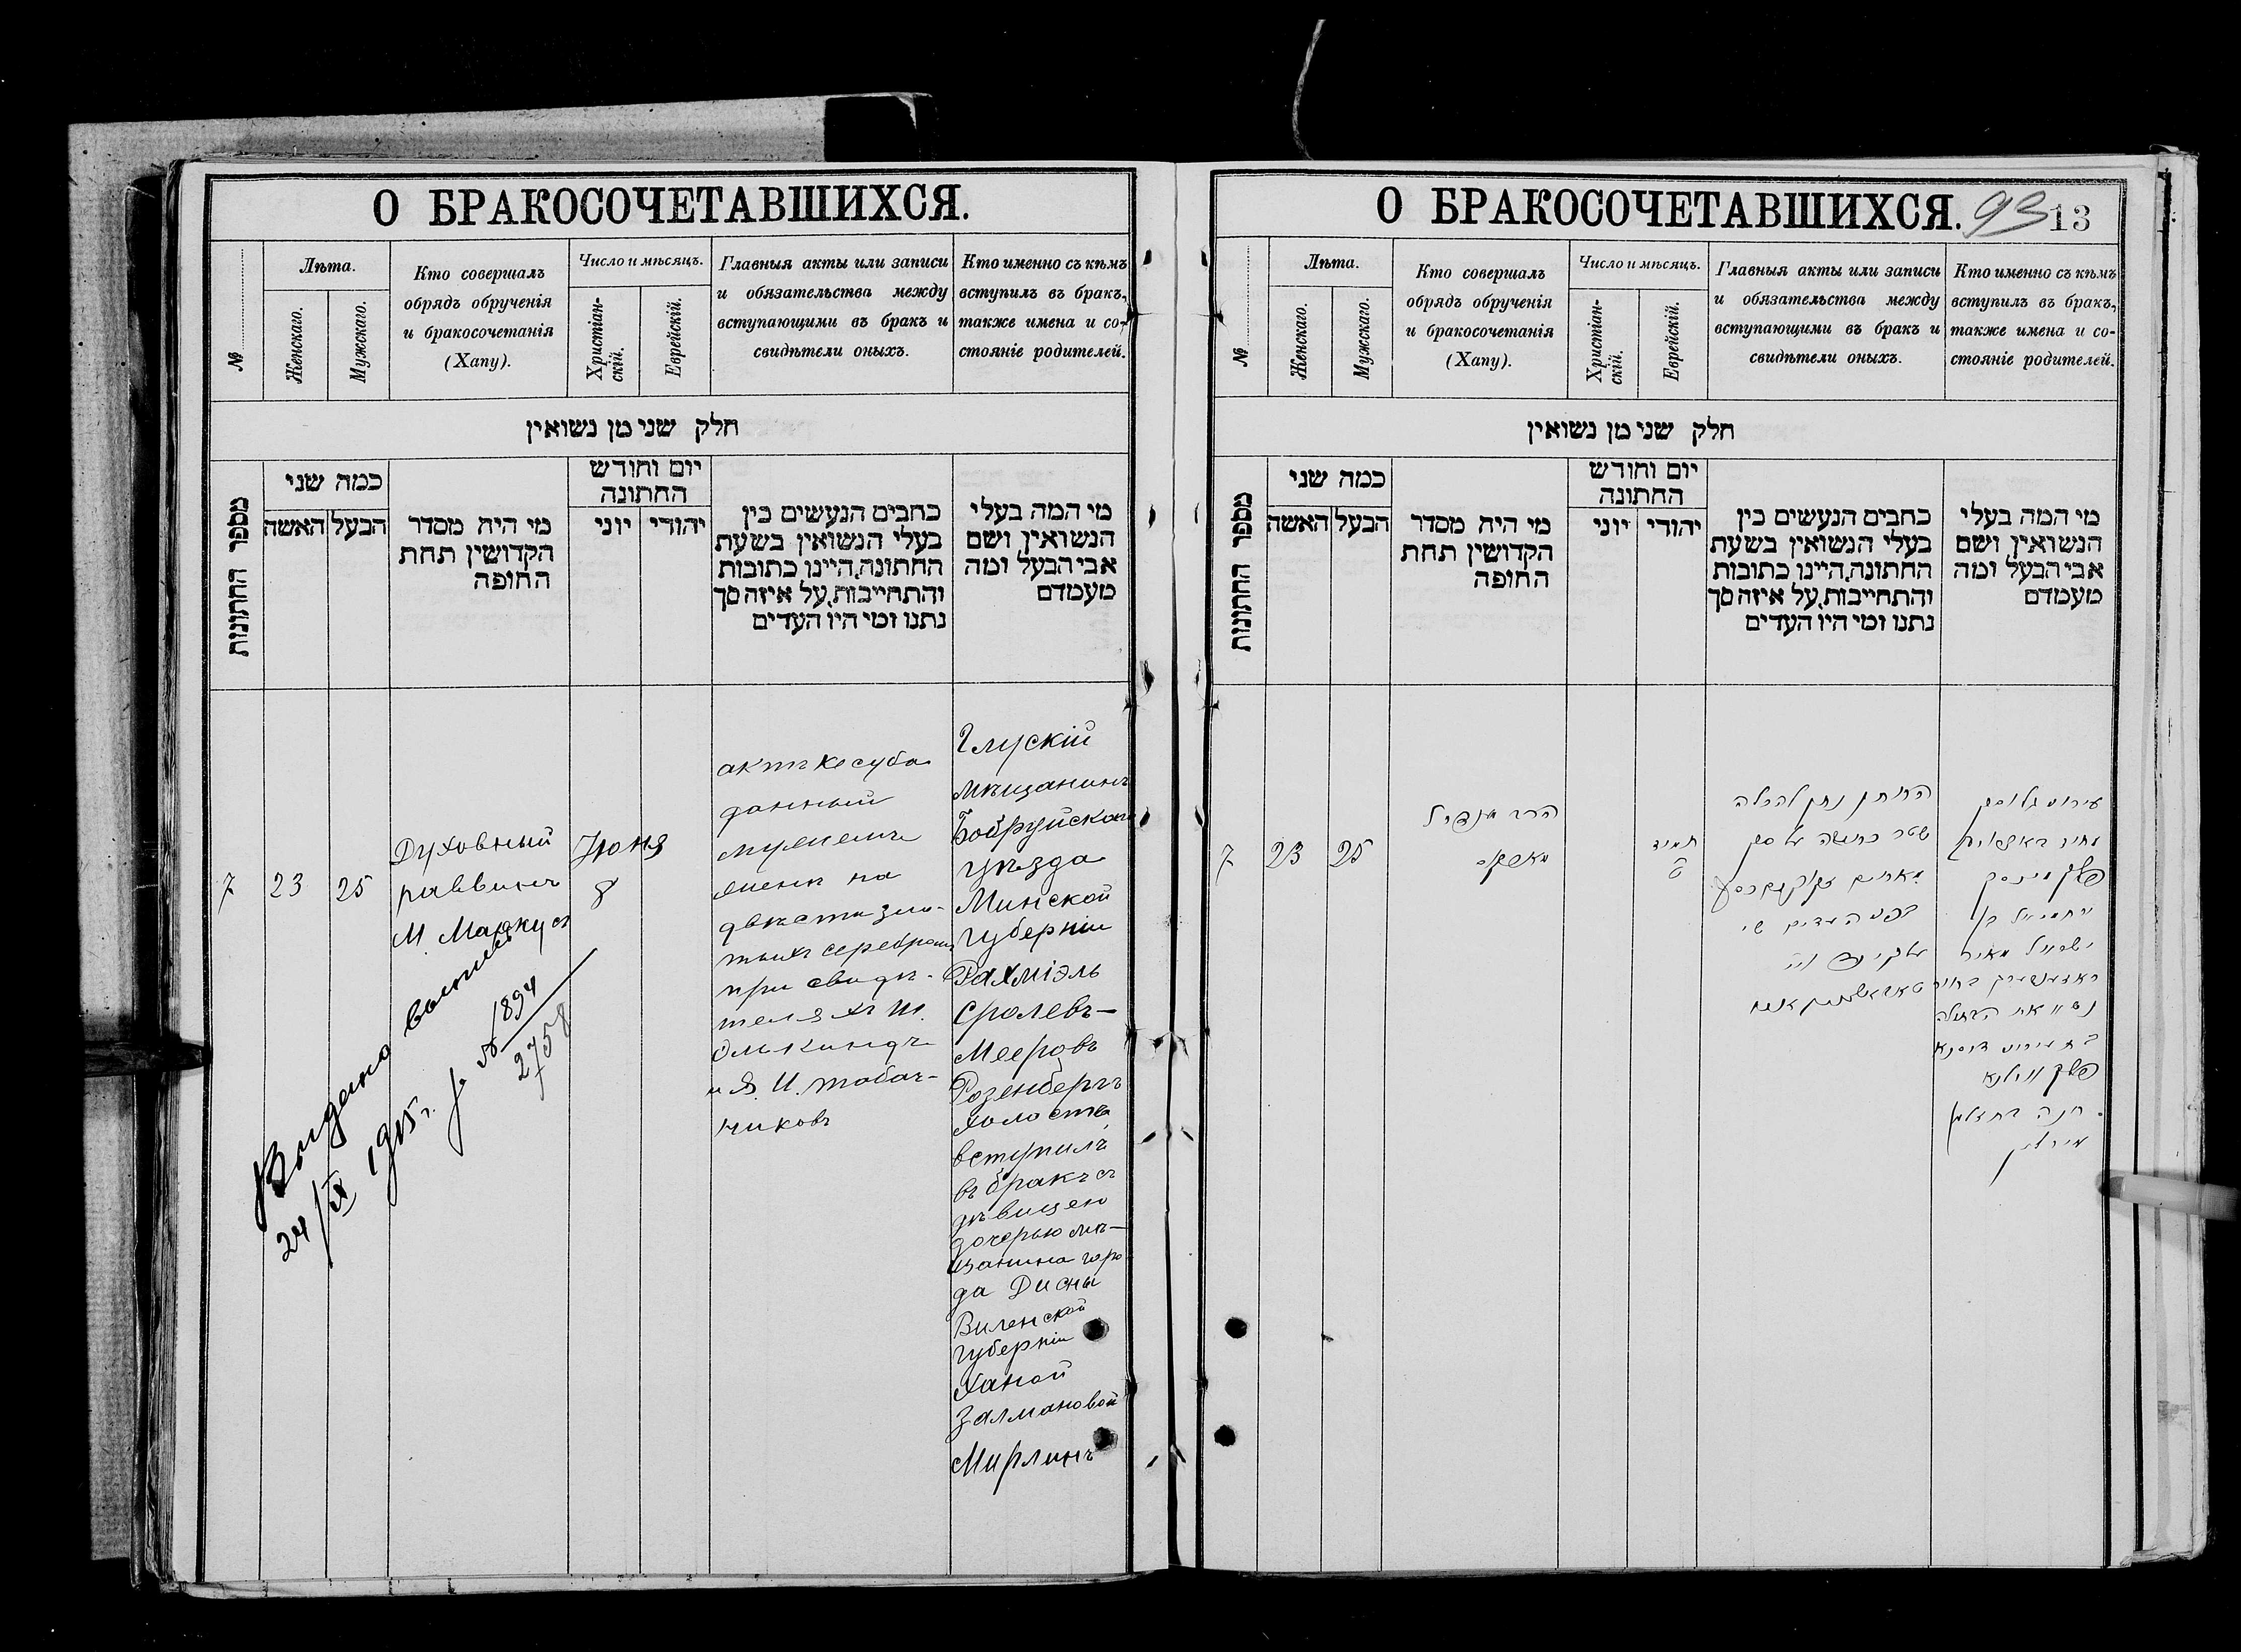 О БРАКОСОЧЕТАВШИХСЯ.
№
Лѣта.
Женскаго.
Мужскаго.
Кто совершалъ
обрядъ обрученія
и бракосочетанія
(Хапу).
Число и мѣсяцъ.
Христіан-
скій.
Еврейскій.
Главныя акты или записи
и обязательства между
вступающими въ бракъ и
свидѣтели оныхъ.
Кто именно съ кѣмъ
вступилъ въ бракъ,
также имена и со-
стояніе родителей.
חלק שני מן נשואין
מספר החתונות
כמה שני
האשה
הבעל
מי היה מסדר
הקדושין תחת
החופה
יום וחודש
החתונה
יוני
יהודי
כתבים הנעשים בין
בעלי הנשואין בשעת
החתונה, היינו כתובות
והתחייבות, על איזה סך
נתנו ומי היו העדים
מי המה בעלי
הנשואין ושם
אבי הבעל ומה
מעמדם
7
23
25
Духовный
раввинъ
М. Маркусъ
Іюня
8
актъ кесуба
данный
мужемъ
женѣ на
двѣсти зло-
тыхъ серебромъ
при свидѣ-
теляхъ Ш.
Элькиндъ
и Я. И. Табач-
никовъ
Глускій
мѣщанинъ
Бобруйскаго
уѣзда
Минской
губерніи
Рахміэль
Сролевъ-
Мееровъ
Розенбергъ
холостъ
вступилъ
въ бракъ съ
дѣвицею
дочерью мѣ-
щанина горо-
да Дисны
Виленской
губерніи
Ханой
Залмановой
Мирлинъ
Выдана выпись
24/IX 1915 г. за № 1894
2758
О БРАКОСОЧЕТАВШИХСЯ.
93
13
№
Лѣта.
Женскаго.
Мужскаго.
Кто совершалъ
обрядъ обрученія
и бракосочетанія
(Хапу).
Число и мѣсяцъ.
Христіан-
скій.
Еврейскій.
Главныя акты или записи
и обязательства между
вступающими въ бракъ и
свидѣтели оныхъ.
Кто именно съ кѣмъ
вступилъ въ бракъ,
также имена и со-
стояніе родителей.
חלק שני מן נשואין
מספר החתונות
כמה שני
האשה
הבעל
מי היה מסדר
הקדושין תחת
החופה
יום וחודש
החתונה
יוני
יהודי
כתבים הנעשים בין
בעלי הנשואין בשעת
החתונה, היינו כתובות
והתחייבות, על איזה סך
נתנו ומי היו העדים
מי המה בעלי
הנשואין ושם
אבי הבעל ומה
מעמדם
7
23
25
הרב
החתן נתן להכלה
שטר כתובה על סך
מאתים
העדים
פלך מינסק
ירחמיאל בן
ישראל מאיר
ראזענבערג בחור
נשא את הבתולה
פלך ווילנא
חנה בת זלמן
מירלין